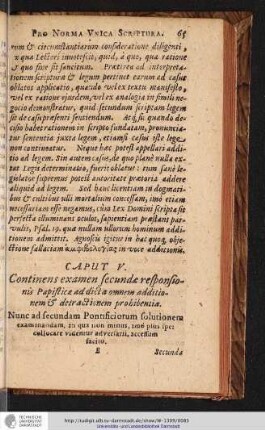 PRO NORMA VNICA SCRIPTURA. 65
rum & circumstantiarum consideratione diligenti,
ex qua Lectori innotescit, quid, à quo, qua ratione
& quo fine sit sancitum. Praterea ad interpreta-
tionem scriptura & legum pertinet earum ad casus
oblatos applicatio, quando vel ex textu manifesto,
vel ex ratione ejusdem, vel ex analogia in simili ne-
gocio demonstratur, quid secundum scriptam legem
sit de casu prasenti sentiendum. Atq; si quando de-
cisio habet rationem in scripto fundatam, pronuncia-
tur sententia juxta legem, etiamsi casus iste lege
non contineatur. Neque hac potest appellari additio
ad legem. Sin autem casus, de quo planè nulla ex-
tat Lege determinatio, fuerit oblatus: tum sanè le-
gislator supremus potest autoritate pratoria addere
aliquid ad legem. Sed hanc licentiam in dogmati-
bus & cultibus ulli mortalium concessam, imò etiam
necessariam esse negamus, cum Lex Domini scripta sit
perfecta illuminans oculos, sapientiam præstans par-
vulis, Psal. 19. qua nullam ullorum hominum
additionem admittit. Agnosca igitur in hac quoq; obje-
ctione fallaciam in voce additionis.
CAPUT V.
Continens examen secundæ responsio-
nis Papisticæ ad dicta omnem additio-
nem & detractionem prohibentia.
Nunc ad secundam Pontificiorum solutionem
examinandam, in qua non minus, imò plus spei
collocare videntur adversarii, accessum
facim9.
E Secunda